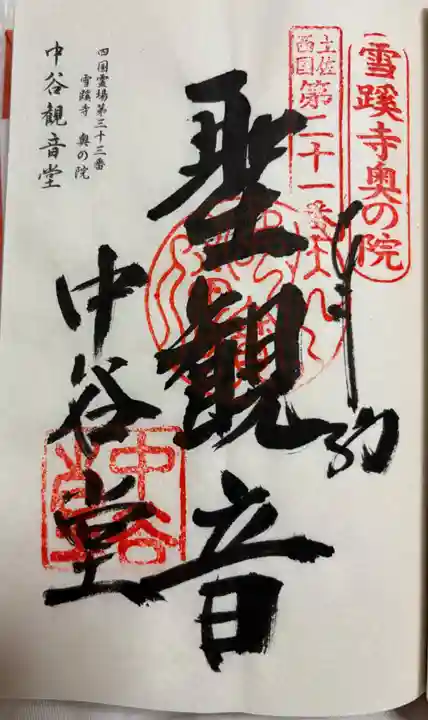 雪蹊寺奥の院
土佐
西国
第二十一番
聖観音
中谷堂
中谷
四国霊場第三十三番
雪蹊寺 奥の院
中谷観音堂